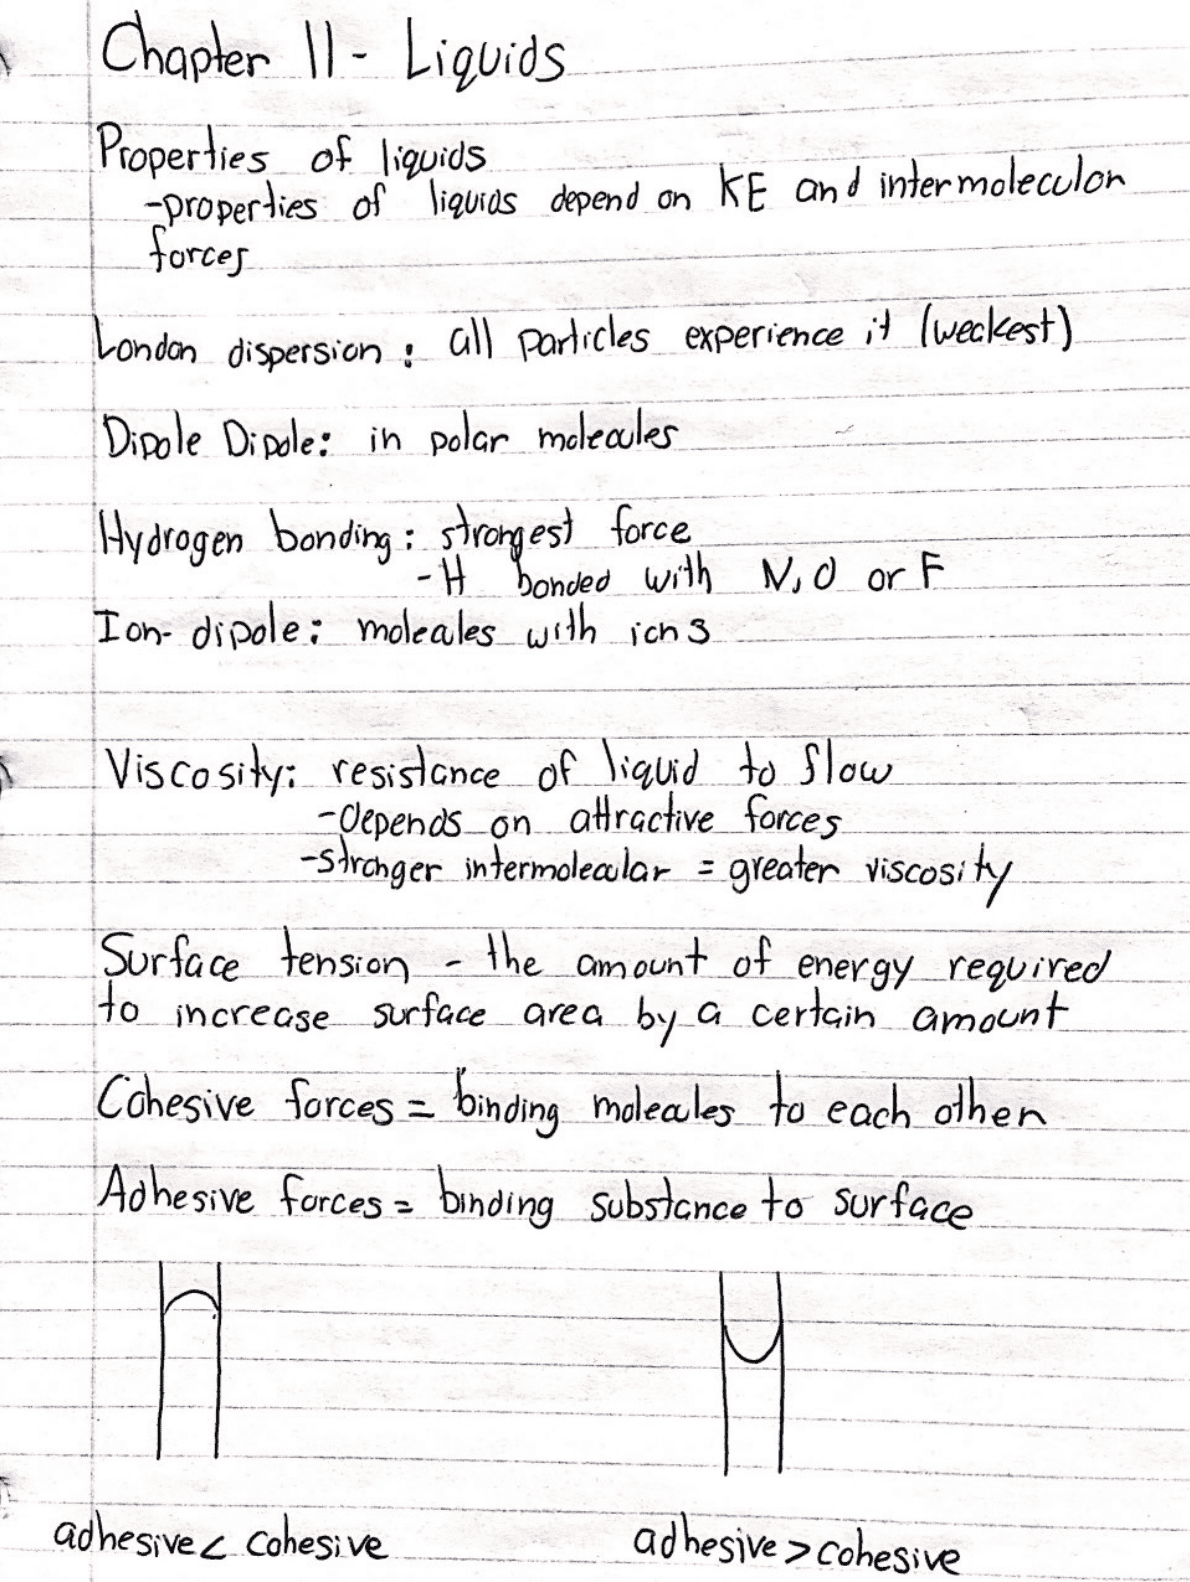 Chapter 11 - Liquids
Properties of liquids
-properties of liquids depend on KE and intermolecular
forces
London dispersion : all particles experience it (weakest)
Dipole Dipole: in polar molecules
Hydrogen bonding : strongest force
-H bonded with N, O or F
Ion-dipole: molecules with ions
Viscosity: resistance of liquid to flow
-depends on attractive forces
-stronger intermolecular = greater viscosity
Surface tension - the amount of energy required
to increase surface area by a certain amount
Cohesive forces = binding molecules to each other
Adhesive forces = binding substance to surface
adhesive < cohesive
adhesive > cohesive